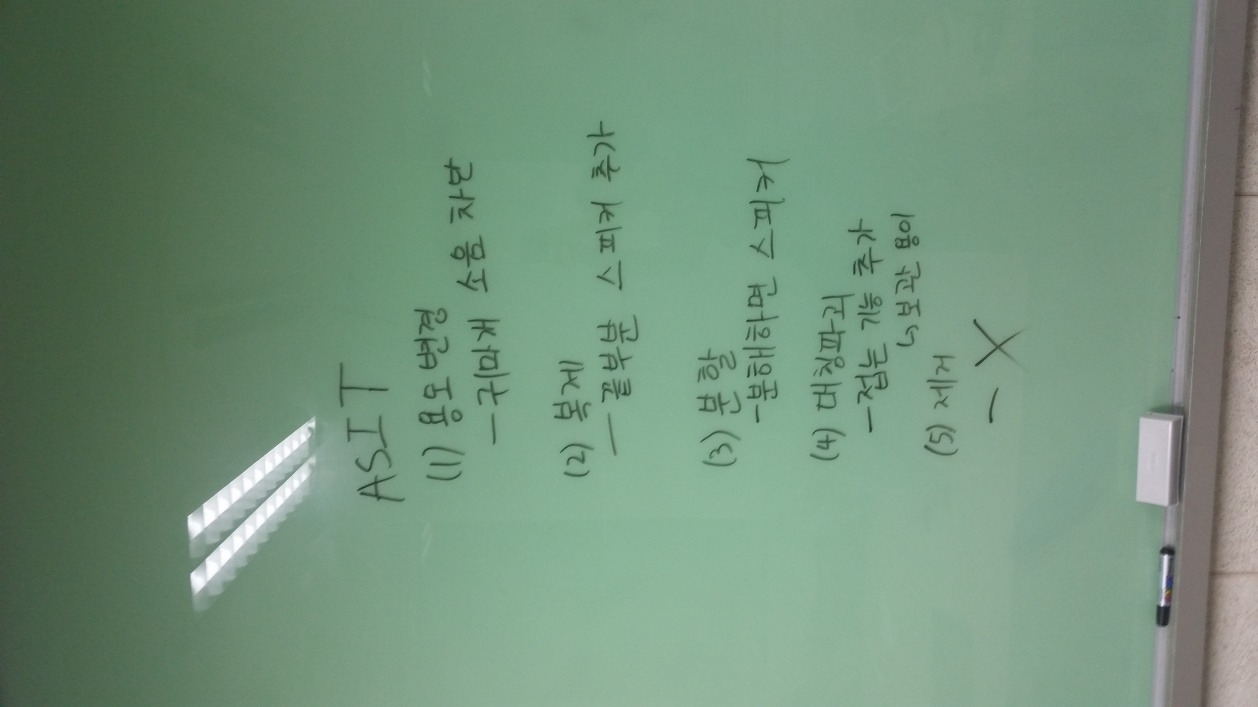 ASIT
(1) 용도변경
- 귀마개 소음 차단
(2) 복제
- 겉부분 스피커 추가
(3) 분할
- 분해하면 스피커
(4) 대칭파괴
- 접는 기능 추가
↳ 보관 용이
(5) 제거
- X